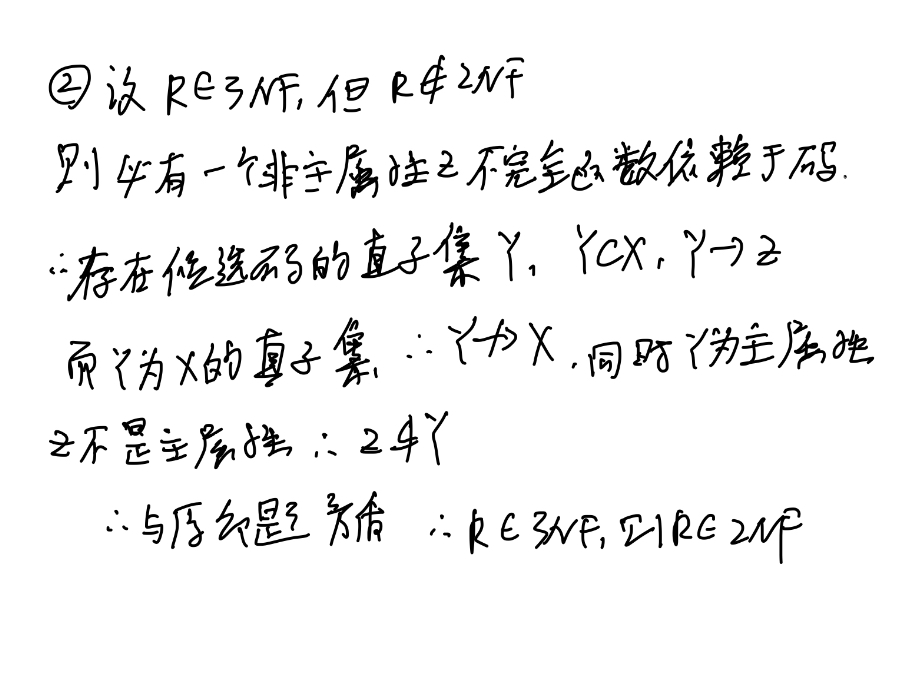 ② 设 R∈3NF, 但 R∉2NF
则必有一个非主属性Z不完全函数依赖于码.
∴存在候选码的真子集Y, Y⊂X, Y→Z
而Y为X的真子集, ∴Y↛X, 同时Y为主属性
Z不是主属性 ∴ Z∉Y
∴与原命题矛盾 ∴R∈3NF, 则R∈2NF